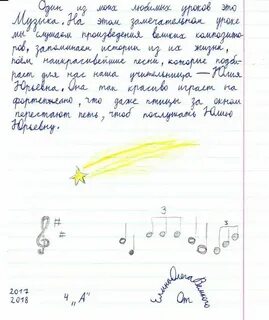 Один из моих любимых уроков это
Музыка. На этом замечательном уроке
мы слушаем произведения великих композито-
ров, запоминаем истории из их жизни,
поём наикрасивейшие песни, которые подби-
рает для нас наша учительница — Юлия
Юрьевна. Она так красиво играет на
фортепиано, что даже птицы за окном
перестают петь, чтоб послушать Юлию
Юрьевну.
3
3
#
#
2017
2018
4 "А"
От